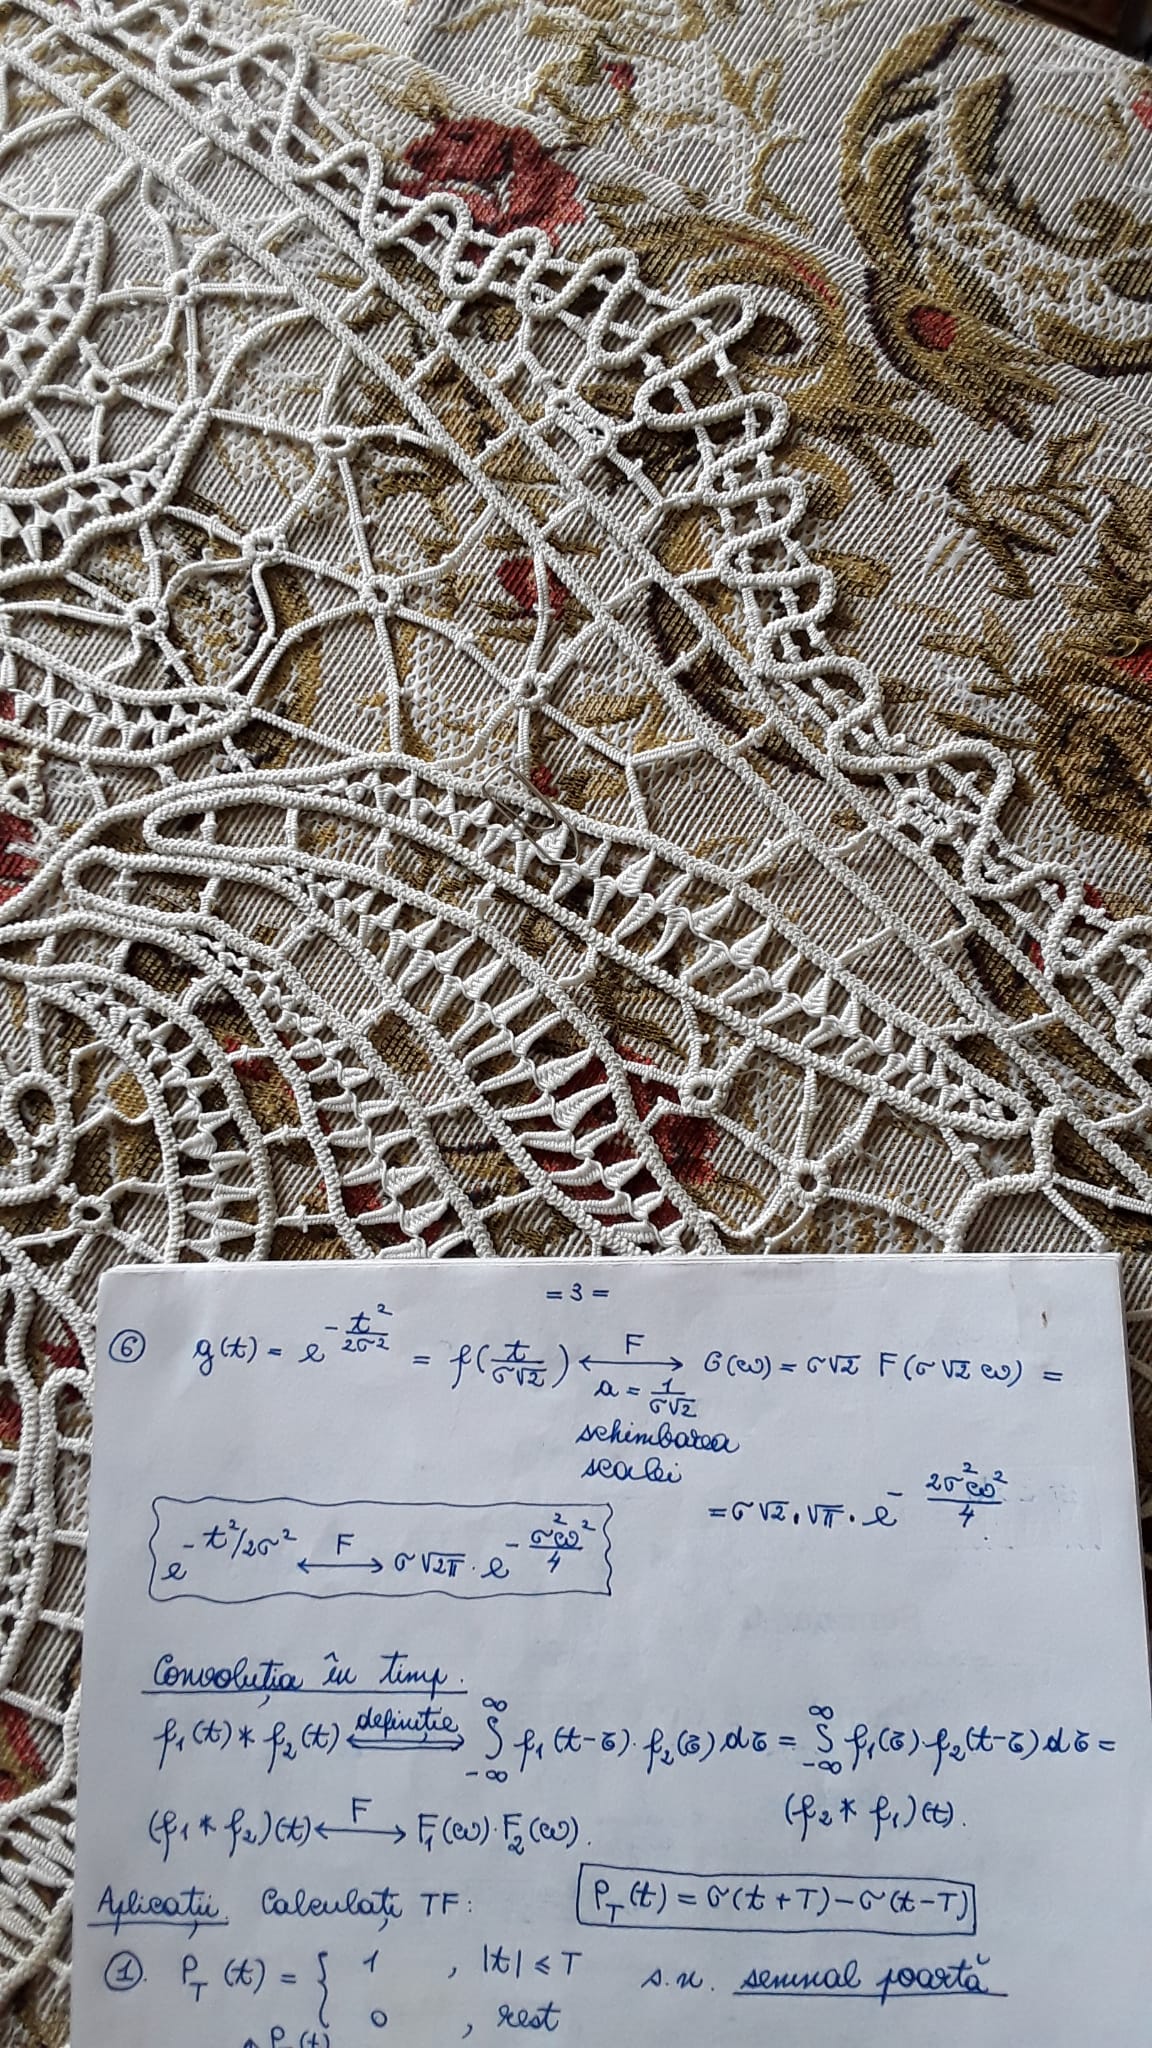 = 3 =
⑥ g(t) = e^{-t²/2σ²} = f(t/σ√2) ⟷^F G(ω) = σ√2 F(σ√2 ω) =
a = 1/σ√2
schimbarea
scalei
= σ√2 · √π · e^{-2σ²ω²/4}
e^{-t²/2σ²} ⟷^F σ√2π · e^{-σ²ω²/4}
Convoluția în timp.
f₁(t) * f₂(t) ⟺^{definiție} ∫_{-∞}^{∞} f₁(t-τ) · f₂(τ) dτ = ∫_{-∞}^{∞} f₁(τ) · f₂(t-τ) dτ =
(f₂ * f₁)(t).
(f₁ * f₂)(t) ⟷^F F₁(ω) · F₂(ω).
Aplicații. Calculați TF: P_T(t) = σ(t+T) - σ(t-T)
①. P_T(t) = { 1 , |t| ≤ T s.n. semnal poartă
0 , rest
P_T(t)